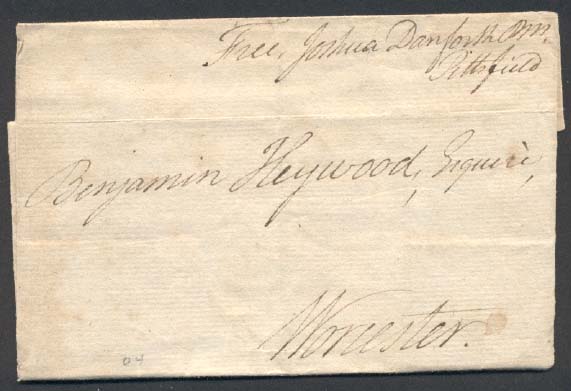 Free, Joshua Danforth P.M.
Pittsfield
Benjamin Heywood, Esquire,
Worcester.
04